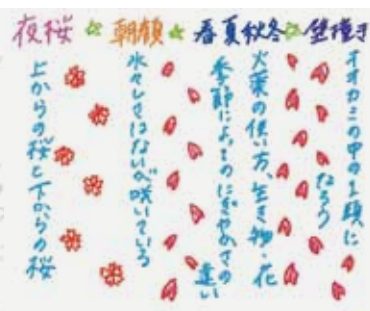 夜桜 ☆ 朝顔 ☆ 春夏秋冬 ☆
オオカミの中の1頭に
なろう
火薬の使い方、生き物・花
季節によってのにぎやかさの
違い
水々しさはないが咲いている
上からの桜と下からの桜